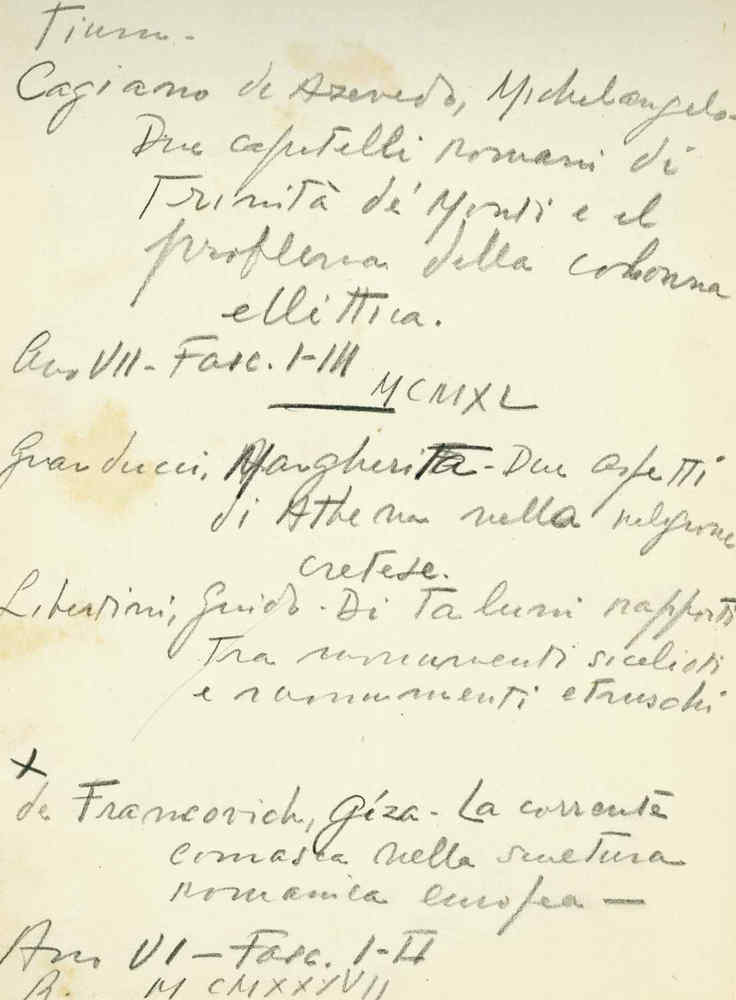 Cagiano de Azevedo, Michelangelo-
Due capitelli romani di
Trinità de' Monti e il
problema della colonna
ellittica.
Ano VII - Fasc. I-III
MCMXL
Guarducci, Margherita - Due aspetti
di Athena nella religione
cretese.
Libertini, Guido - Di taluni rapporti
tra monumenti sicelioti
e monumenti etruschi
x
de Francovich, Géza - La corrente
comasca nella scultura
romanica europea —
Ano VI - Fasc. I-II
R. MCMXXXVII